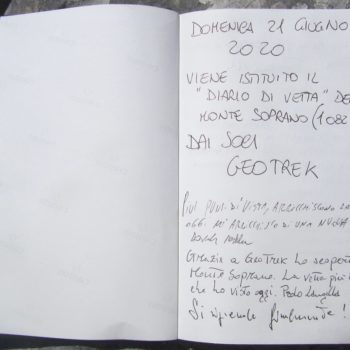 DOMENICA 21 GIUGNO
2020
VIENE ISTITUITO IL
"DIARIO DI VETTA" DE
MONTE SOPRANO (1082
DAI SOCI
GEOTREK
PIÙ PUNTI DI VISTA, ARRICCHISCONO
OGGI MI ARRICCHISCO DI UNA NUOVA
Grazie a GeoTrek ho scoperto
Monte Soprano. La vetta più
che ho visto oggi. Paolo
Si riprende finalmente!